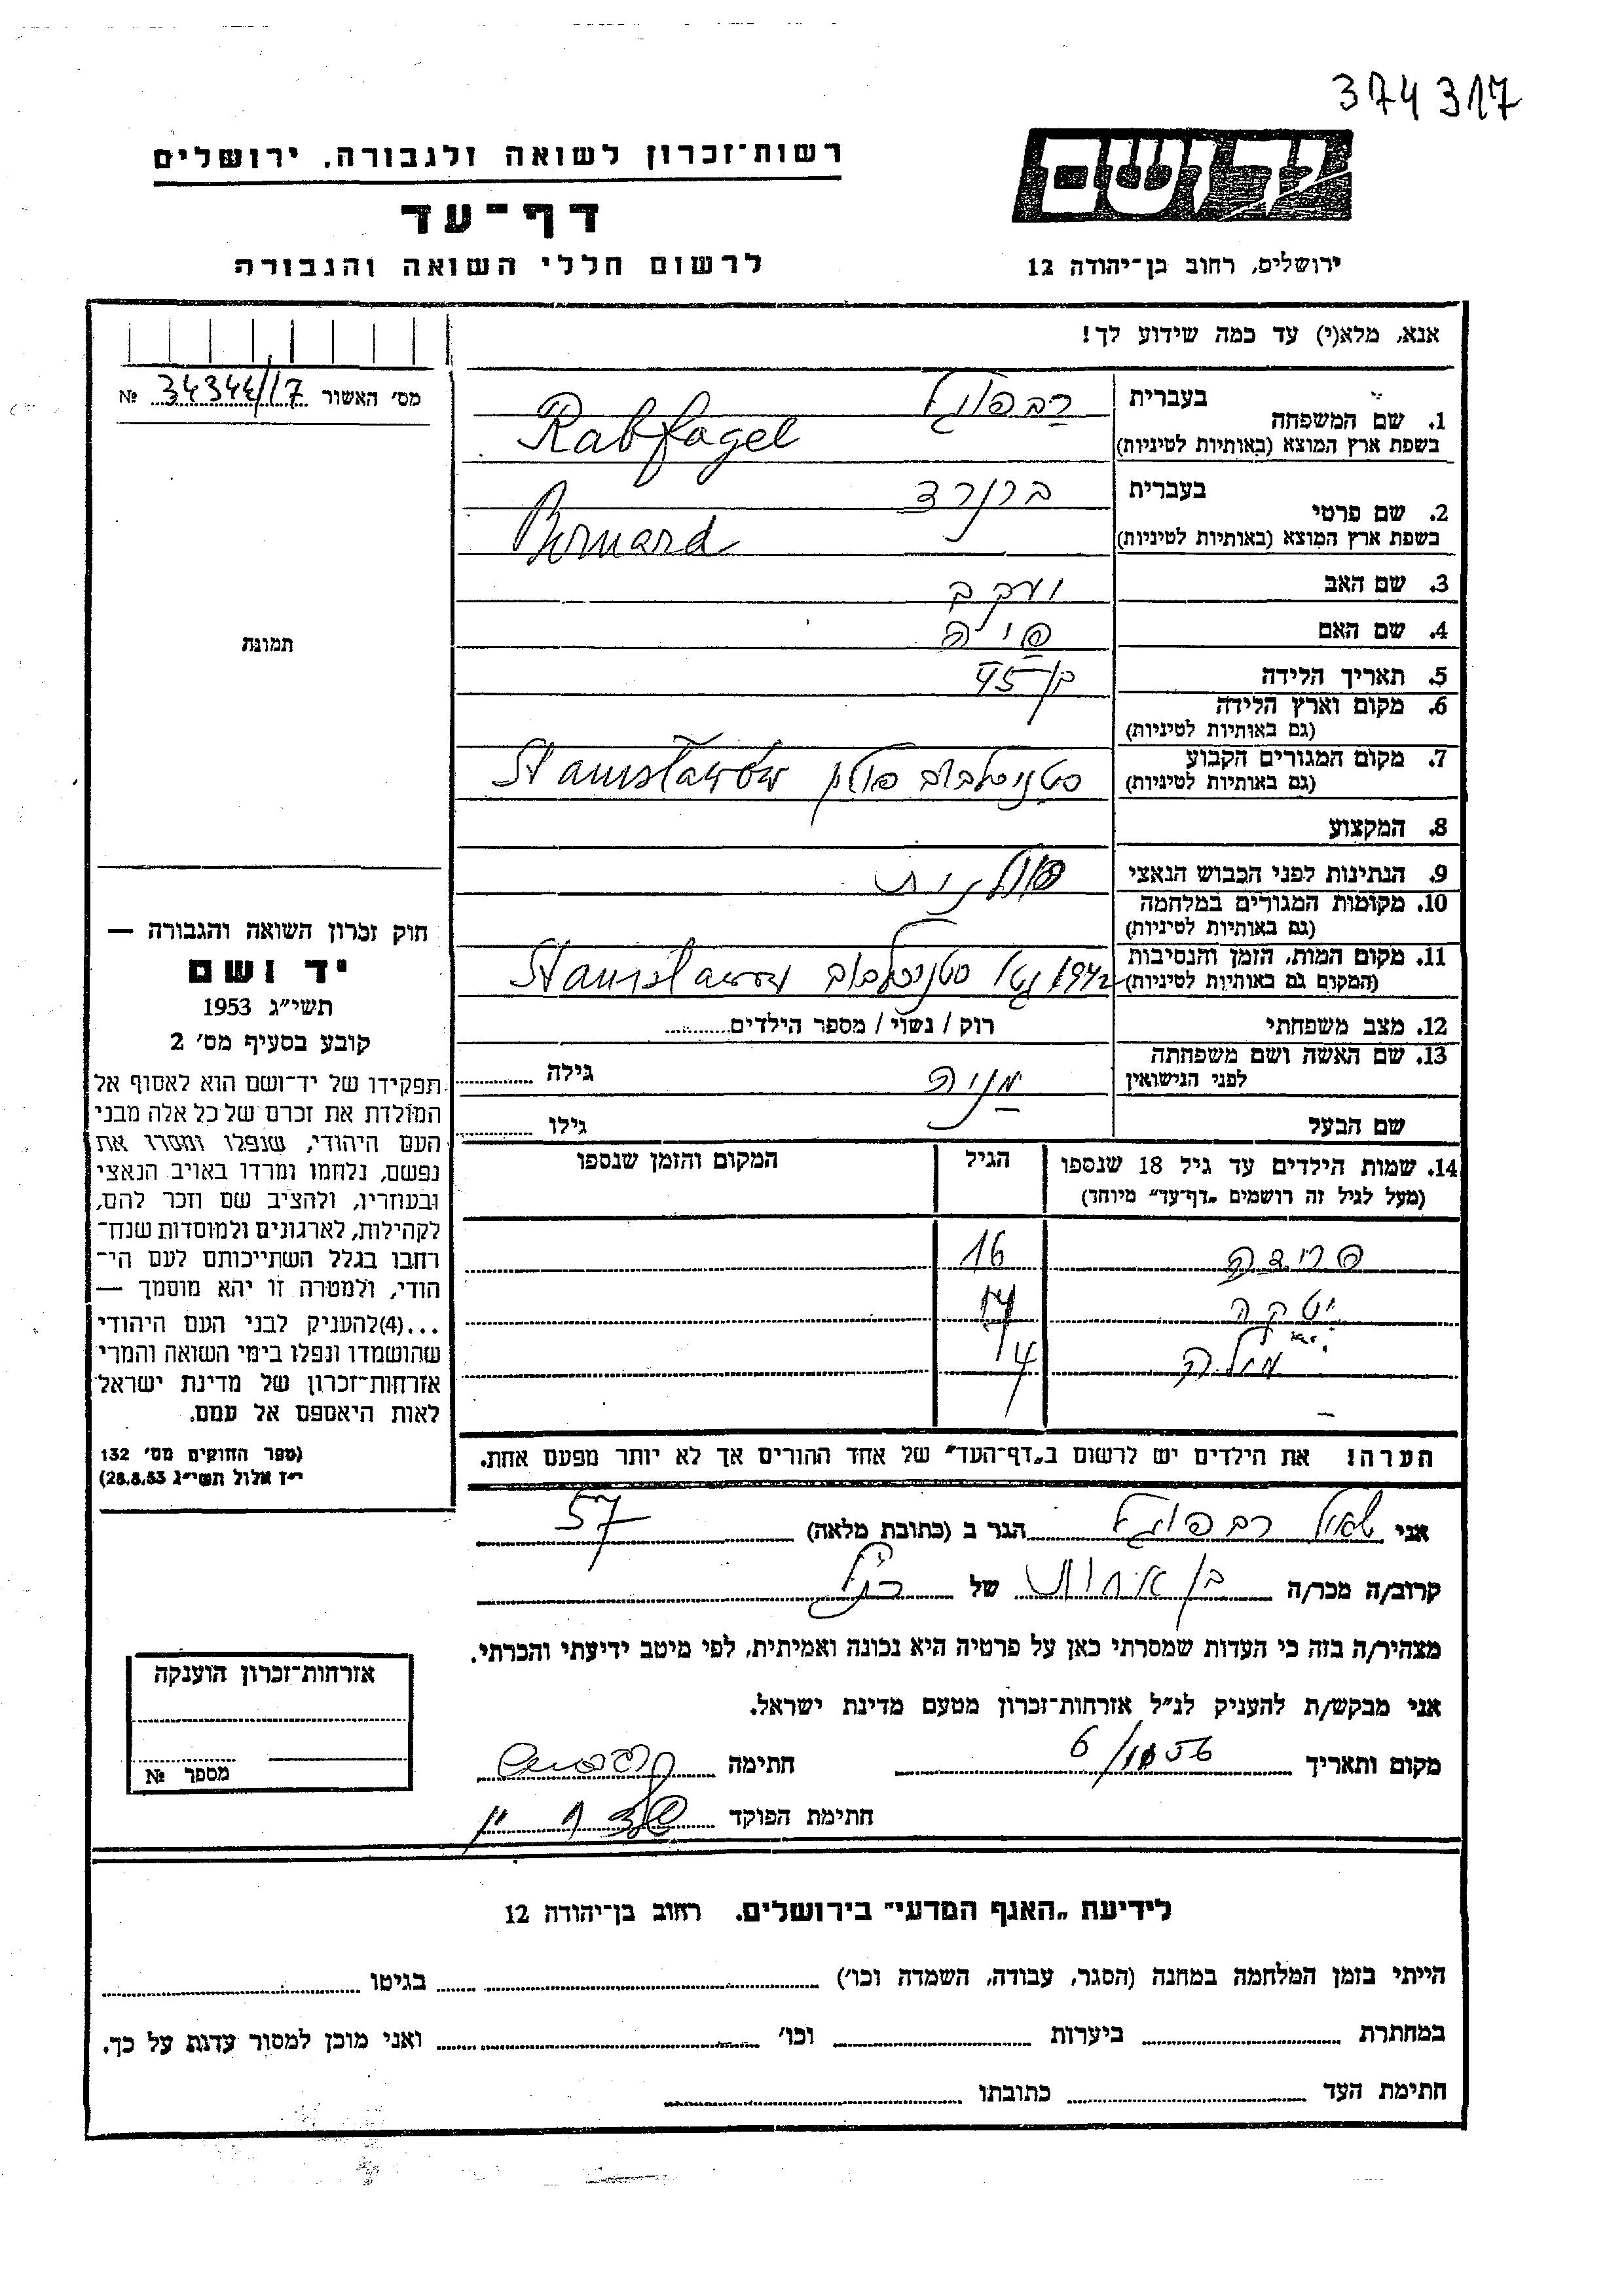 374317
רשות־זכרון לשואה ולגבורה, ירושלים
דף־עד
לרשום חללי השואה והגבורה
יד ושם
ירושלים, רחוב בן־יהודה 12
אנא, מלא(י) עד כמה שידוע לך!
מס׳ האשור 34344/17 №
תמונה
1. שם המשפחה בעברית רבפוגל
בשפת ארץ המוצא (באותיות לטיניות) Rabfogel
2. שם פרטי בעברית ברנרד
בשפת ארץ המוצא (באותיות לטיניות) Bernard
3. שם האב יעקב
4. שם האם
5. תאריך הלידה בן 45
6. מקום וארץ הלידה
(גם באותיות לטיניות)
7. מקום המגורים הקבוע סטניסלבוב פולין Stanisławów
(גם באותיות לטיניות)
8. המקצוע
9. הנתינות לפני הכבוש הנאצי פולנית
10. מקומות המגורים במלחמה
(גם באותיות לטיניות)
11. מקום המות, הזמן והנסיבות 1942 גטו סטניסלבוב Stanisławow
(המקום גם באותיות לטיניות)
12. מצב משפחתי רוק / נשוי / מספר הילדים
13. שם האשה ושם משפחתה מניה גילה
לפני הנישואין
שם הבעל גילו
14. שמות הילדים עד גיל 18 שנספו הגיל המקום והזמן שנספו
(מעל לגיל זה רושמים „דף־עד״ מיוחד)
פרידה 16
יטקה 14
4
הערה! את הילדים יש לרשום ב„דף־העד״ של אחד ההורים אך לא יותר מפעם אחת.
חוק זכרון השואה והגבורה —
יד ושם
תשי״ג 1953
קובע בסעיף מס׳ 2
תפקידו של יד־ושם הוא לאסוף אל
המולדת את זכרם של כל אלה מבני
העם היהודי, שנפלו ומסרו את
נפשם, נלחמו ומרדו באויב הנאצי
ובעוזריו, ולהציב שם וזכר להם,
לקהילות, לארגונים ולמוסדות שנח־
רחבו בגלל השתייכותם לעם הי־
הודי, ולמטרה זו יהא מוסמך —
...(4) להעניק לבני העם היהודי
שהושמדו ונפלו בימי השואה והמרי
אזרחות־זכרון של מדינת ישראל
לאות היאספם אל עמם.
(ספר החוקים מס׳ 132
י״ז אלול תשי״ג 28.8.53)
אני שאול רבפוגל הגר ב (כתובת מלאה) 57
קרוב/ה מכר/ה בן אחות של הנ״ל
מצהיר/ה בזה כי העדות שמסרתי כאן על פרטיה היא נכונה ואמיתית, לפי מיטב ידיעתי והכרתי.
אני מבקש/ת להעניק לנ״ל אזרחות־זכרון מטעם מדינת ישראל.
מקום ותאריך חתימה
חתימת הפוקד
אזרחות־זכרון הוענקה
מספר №
לידיעת „האגף המדעי״ בירושלים. רחוב בן־יהודה 12
הייתי בזמן המלחמה במחנה (הסגר, עבודה, השמדה וכו׳) בגיטו
במחתרת ביערות וכו׳ ואני מוכן למסור עדות על כך.
חתימת העד כתובתו